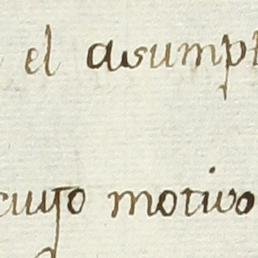 el asumpt
cuyo motivo